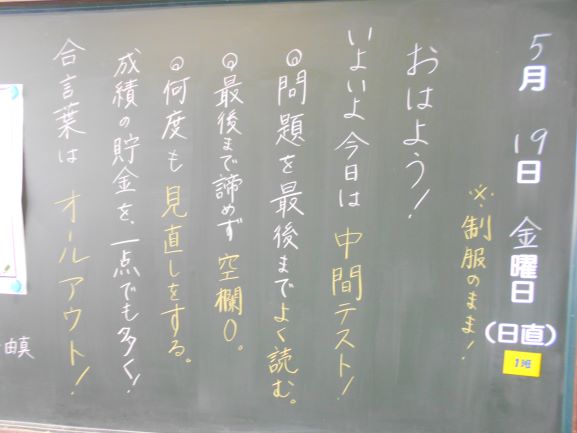 5月 19日 金曜日
(日直)
1班
※制服のまま!
おはよう!
いよいよ今日は中間テスト!
◎問題を最後までよく読む。
◎最後まで諦めず空欄0。
◎何度も見直しをする。
成績の貯金を、一点でも多く!
合言葉はオールアウト!
由真